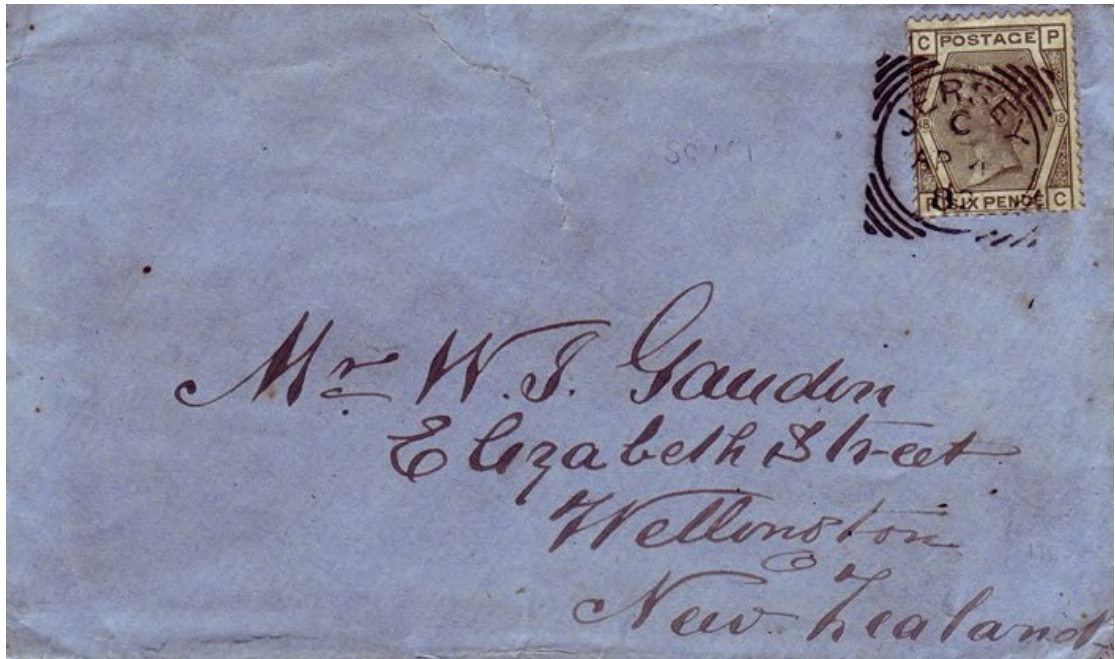 C POSTAGE P
18 18
P SIX PENCE C
JERSEY
C
AP
Mr W. J. Gaudin
Elizabeth Street
Wellington
New Zealand